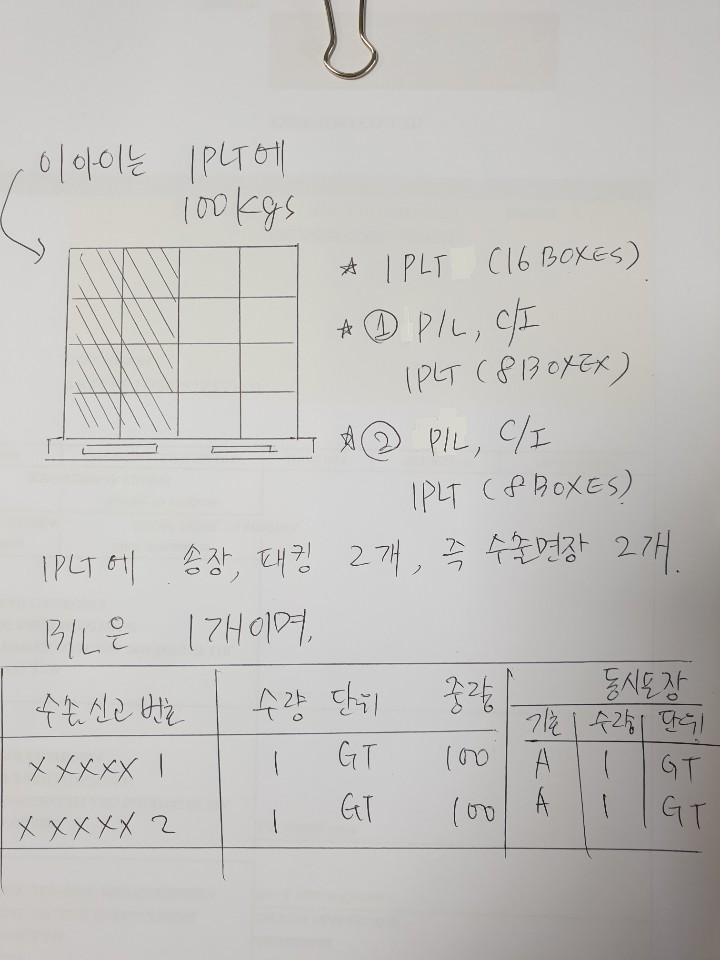 이 아이는 1PLT에
100kgs
☆ 1PLT (16 BOXES)
☆ ① P/L, C/I
1PLT (8 BOXEX)
☆ ② P/L, C/I
1PLT (8 BOXES)
1PLT에 송장, 패킹 2개, 즉 수출면장 2개.
B/L은 1개이며,
동시포장
수출신고번호 수량 단위 중량 기호 수량 단위
XXXXX 1 1 GT 100 A 1 GT
XXXXX 2 1 GT 100 A 1 GT